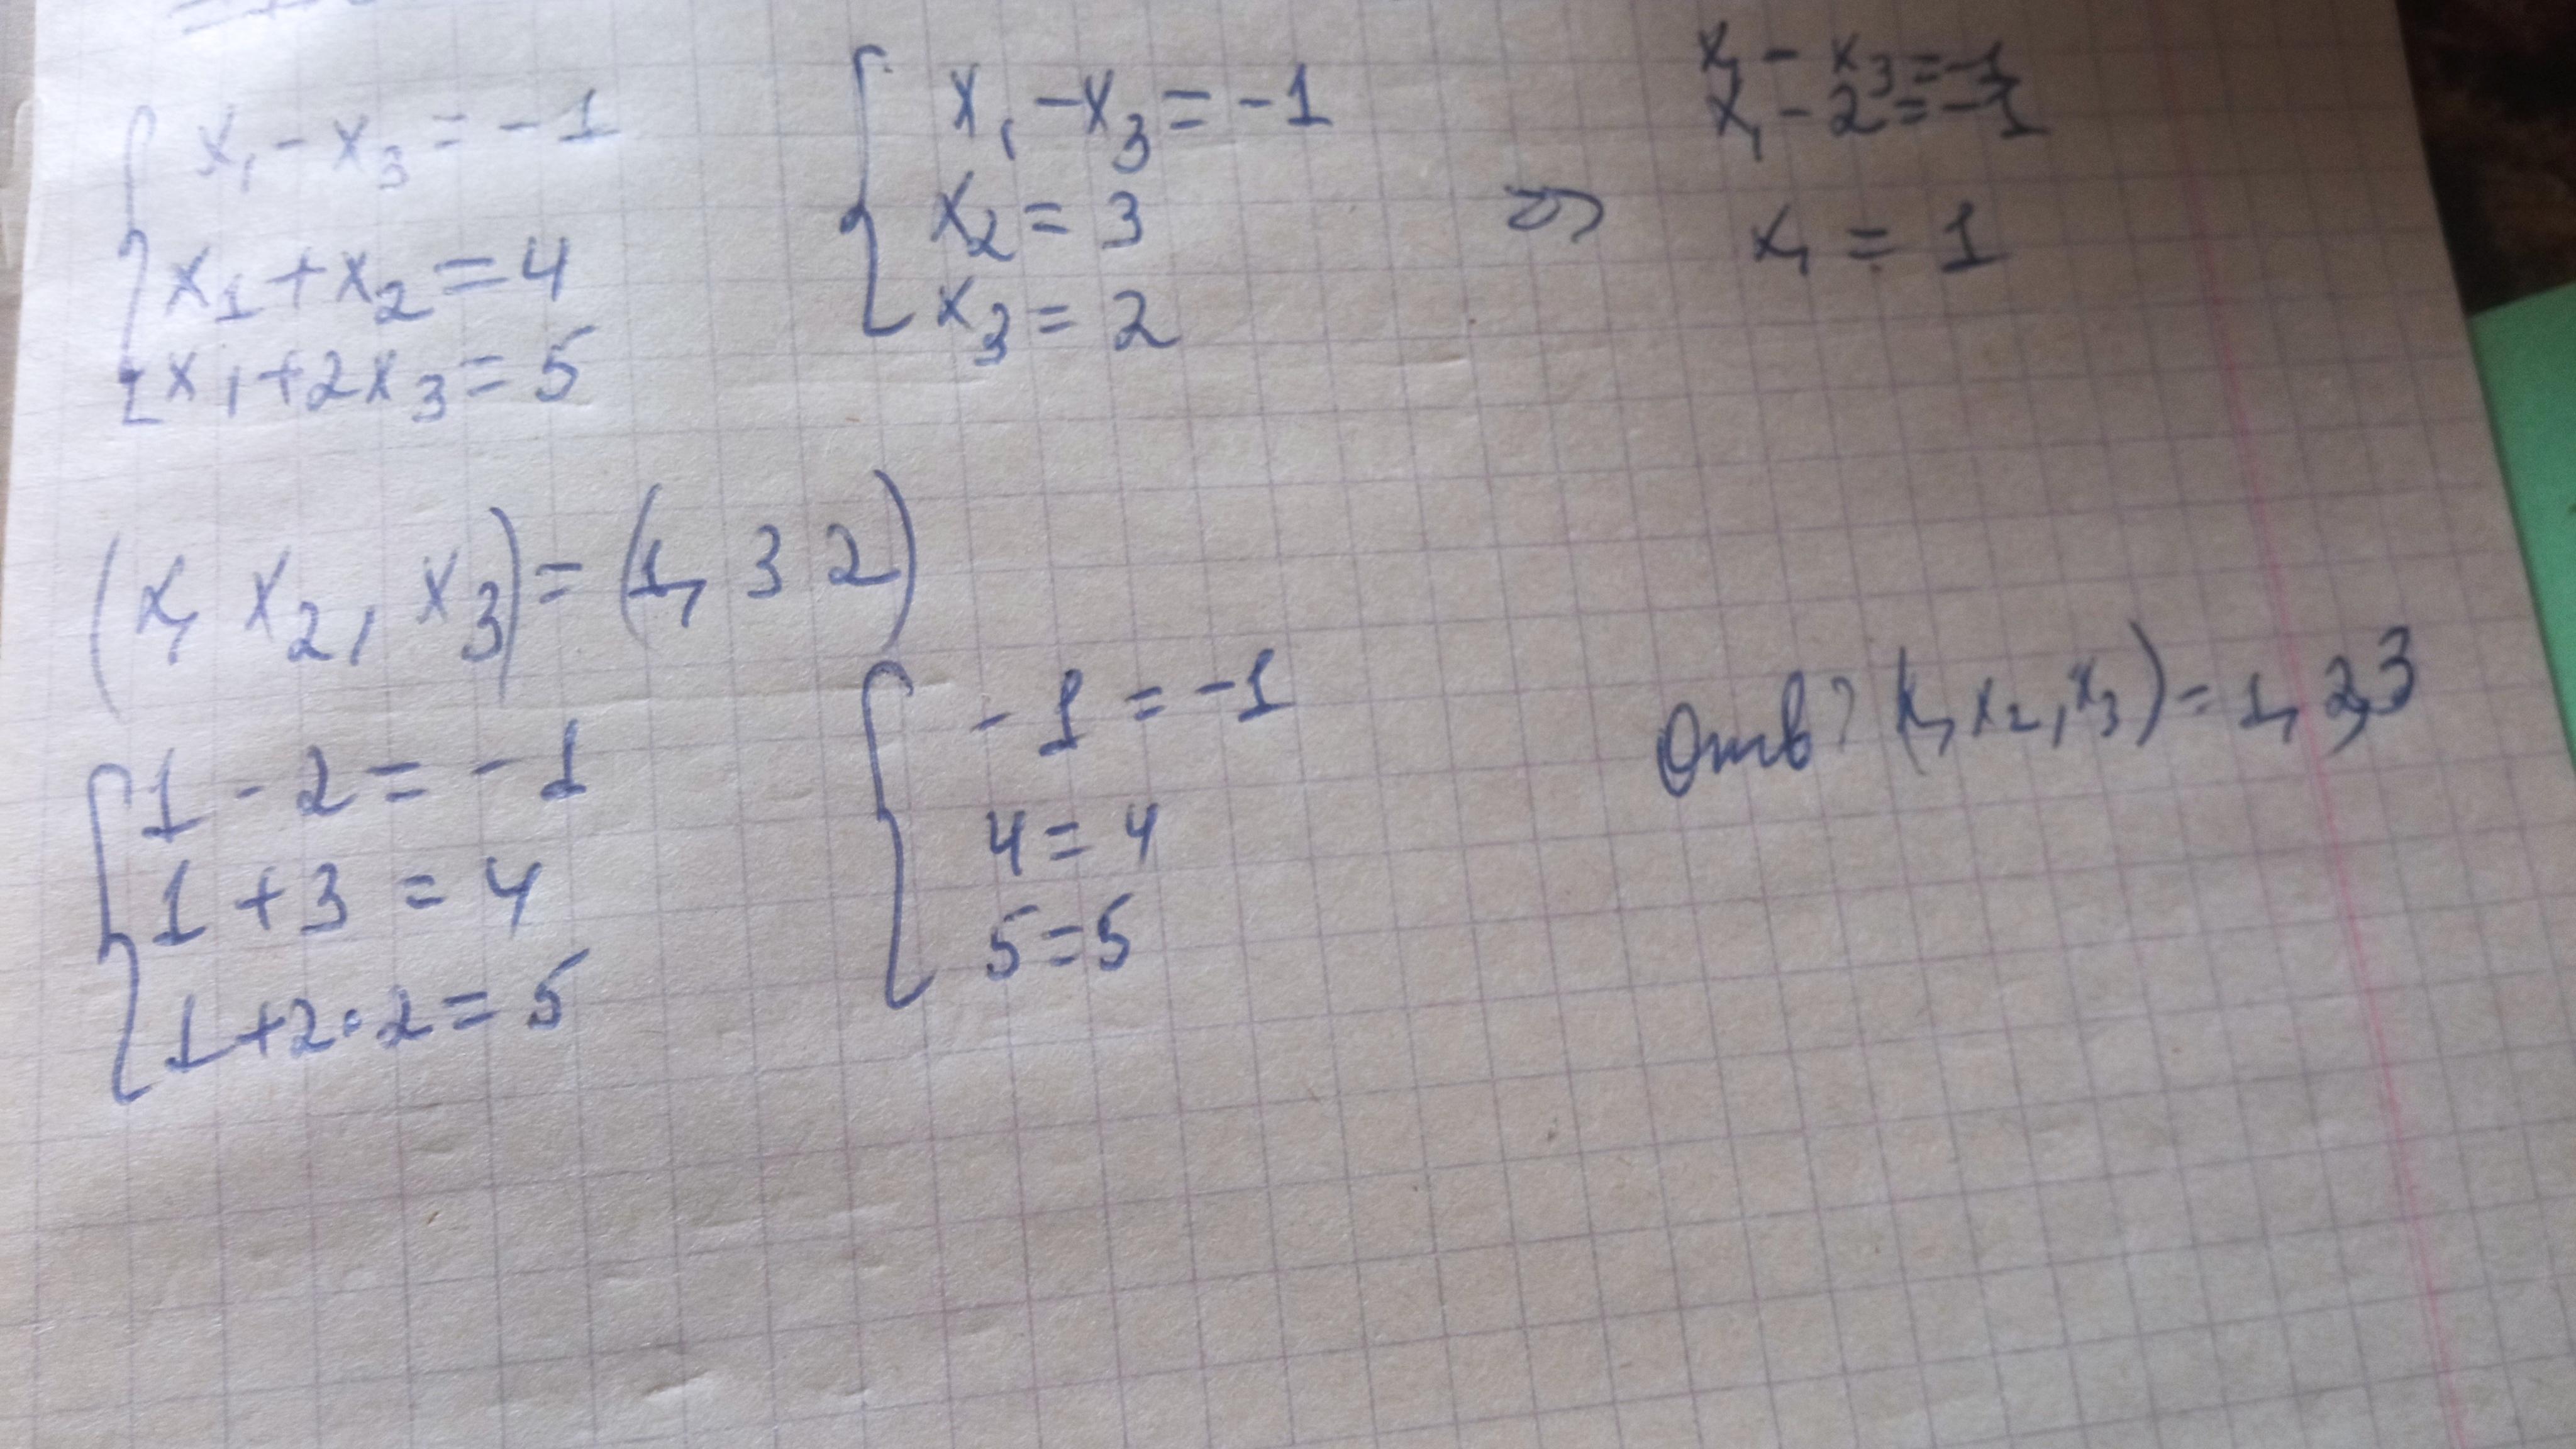 x₁ - x₃ = -1
x₁ + x₂ = 4
x₁ + 2x₃ = 5
x₁ - x₃ = -1
x₂ = 3
x₃ = 2
⇒
x₁ - x₃ = -1
x₁ - 2 = -1
x₁ = 1
(x, x₂, x₃) = (1, 3 2)
1 - 2 = -1
1 + 3 = 4
1 + 2·2 = 5
-1 = -1
4 = 4
5 = 5
Отв: (x, x₂, x₃) = 1, 2,3